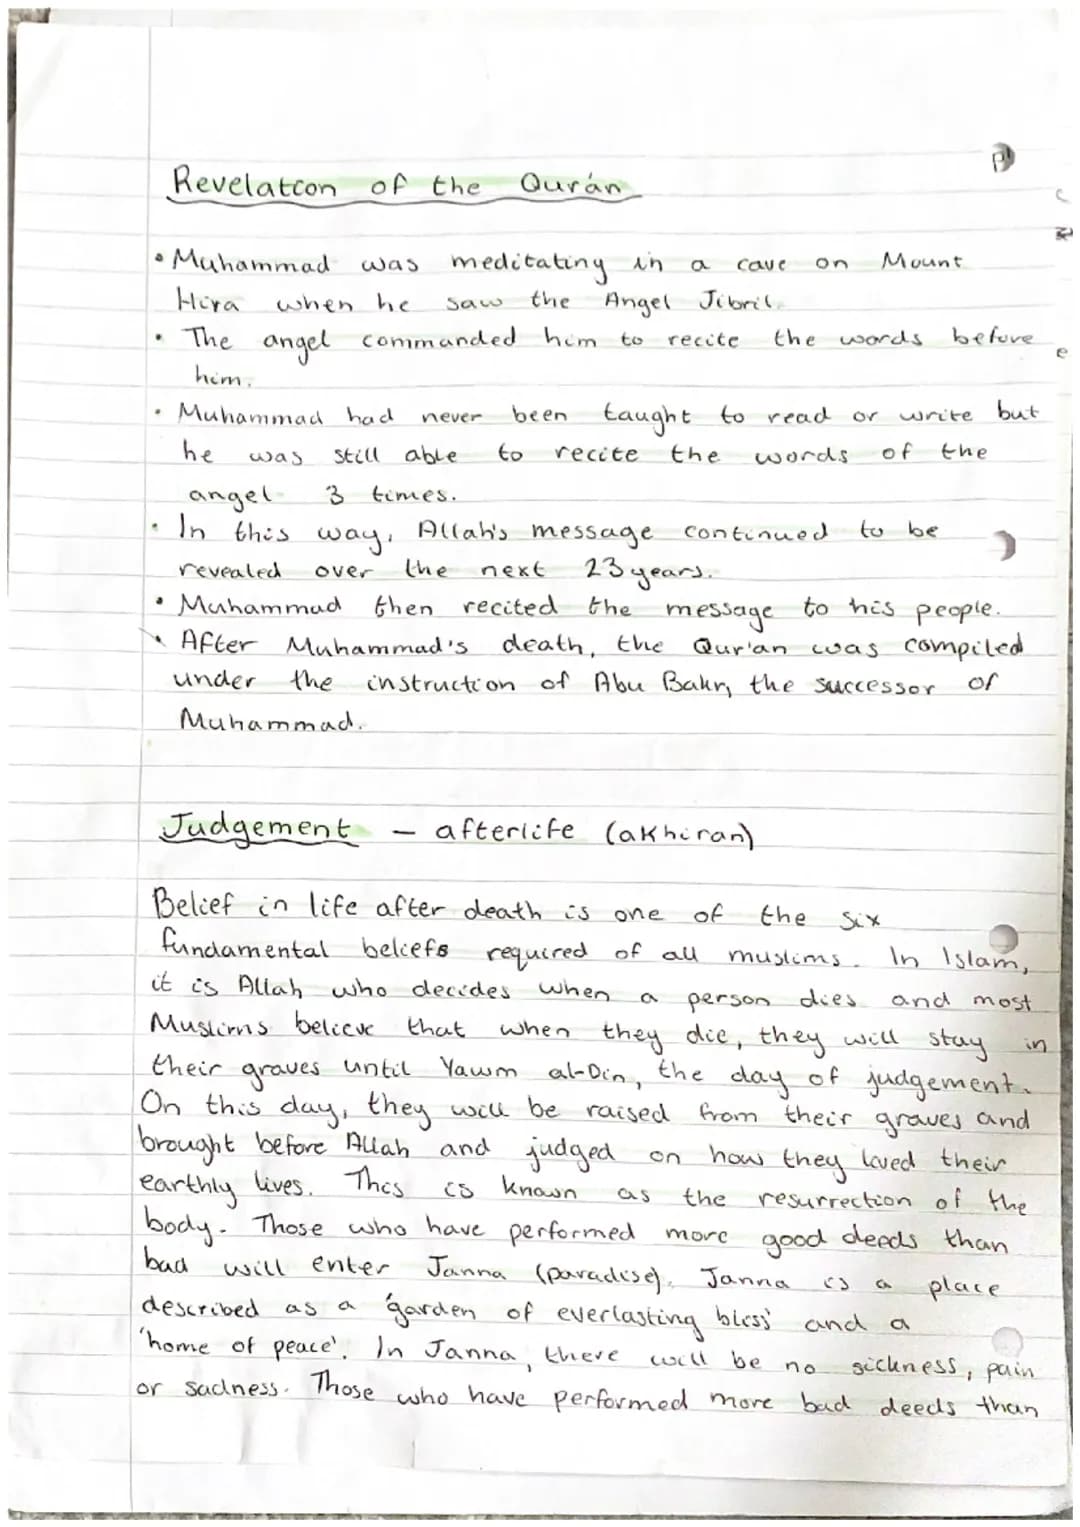 Revelation of the Qur'an
• Muhammad was meditating in a cave on Mount
Hira when he saw the Angel Jibril.
• The angel commanded him to recite the words before
him.
• Muhammad had never been taught to read or write but
he was still able to recite the words of the
angel 3 times.
• In this way, Allah's message continued to be
revealed over the next 23 years.
• Muhammad then recited the message to his people.
• After Muhammad's death, the Qur'an was compiled
under the instruction of Abu Bakr, the successor of
Muhammad.
Judgement - afterlife (akhirah)
Belief in life after death is one of the six
fundamental beliefs required of all muslims. In Islam,
it is Allah who decides when a person dies and most
Muslims believe that when they die, they will stay in
their graves until Yawm al-Din, the day of judgement.
On this day, they will be raised from their graves and
brought before Allah and judged on how they lived their
earthly lives. This is known as the resurrection of the
body. Those who have performed more good deeds than
bad will enter Janna (paradise). Janna is a place
described as a 'garden of everlasting bliss' and a
'home of peace'. In Janna, there will be no sickness, pain
or sadness. Those who have performed more bad deeds than